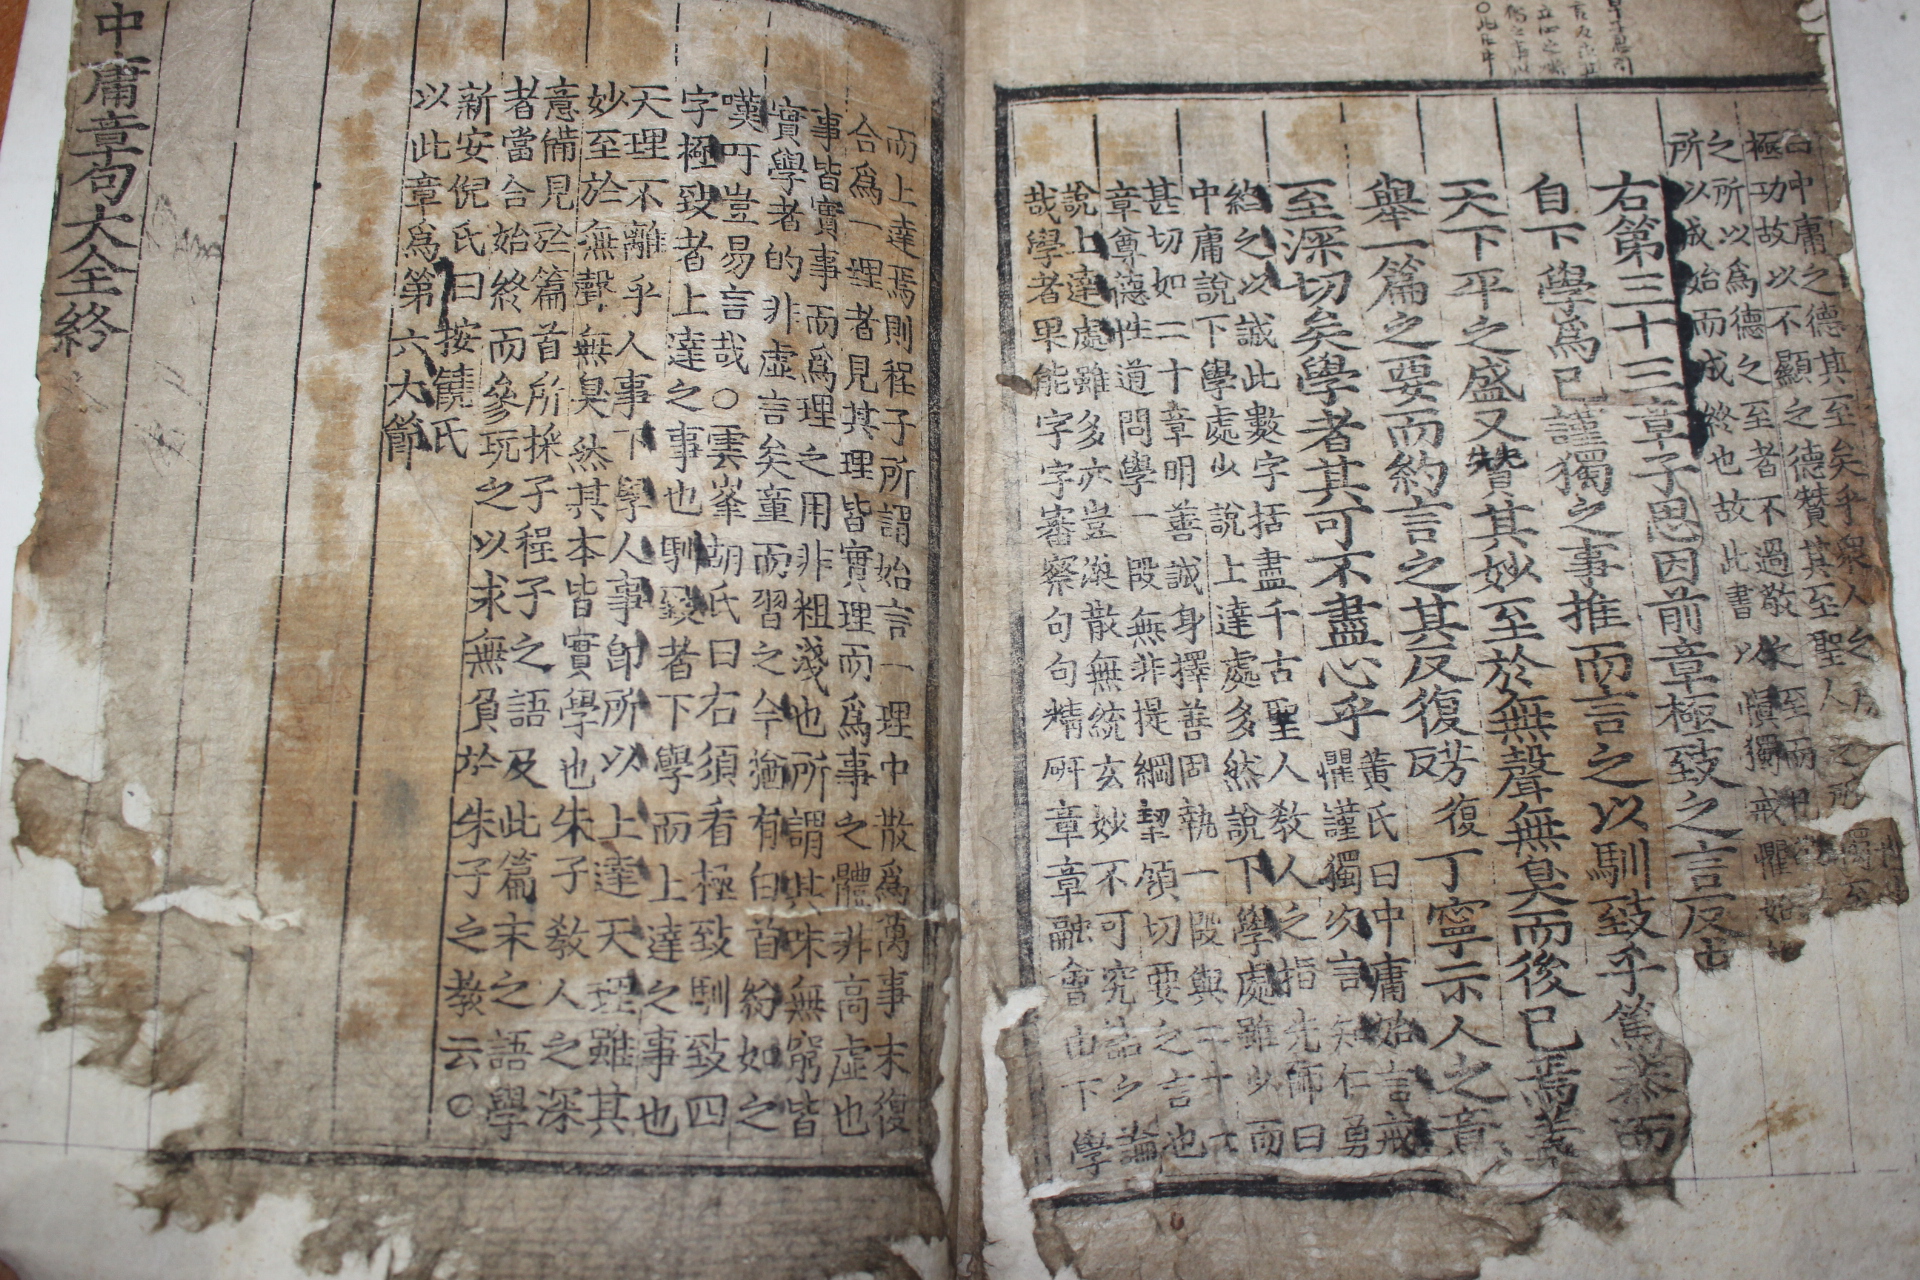 曰中庸之德其至矣乎衆人之
極功故以不顯之德贊其至聖人之
之所以爲德之至者不過敬之至而
所以成始而成終也故此書以愼獨戒懼始
右第三十三章子思因前章極致之言反
自下學爲己謹獨之事推而言之以馴致乎篤恭而
天下平之盛又贊其妙至於無聲無臭而後已焉蓋
舉一篇之要而約言之其反復芳復反丁寧示人之意
至深切矣學者其可不盡心乎黃氏曰中庸始言戒
懼謹獨次言知仁勇
終之以誠此數字括盡千古聖人敎人之指先師曰
中庸說下學處少說上達處多然說下學處雖少而
甚切如二十章明善誠身擇善固執一段與二十七
章尊德性道問學一段無非提綱挈領切要之言也
說上達處雖多亦豈渙散無統玄妙不可究詰之論
哉學者果能字字審察句句精硏章章融會由下學
而上達焉則程子所謂始言一理中散爲萬事末復
合爲一理者見其理皆實理而爲事之體非高虛也
事皆實事而爲理之用非粗淺也所謂其味無窮皆
實學者的非虛言矣童而習之今猶有白首紛如之
嘆吁豈易言哉○雲峯胡氏曰右須看極致馴致四
字極致者上達之事也馴致者下學而上達之事也
天理不離乎人事下學人事卽所以上達天理雖其
妙至於無聲無臭然其本皆實學也朱子敎人之深
意備見於篇首所採子程子之語及此篇末之語學
者當合始終而參玩之以求無負於朱子之敎云○
新安倪氏曰按饒氏
以此章爲第六大節
中庸章句大全終